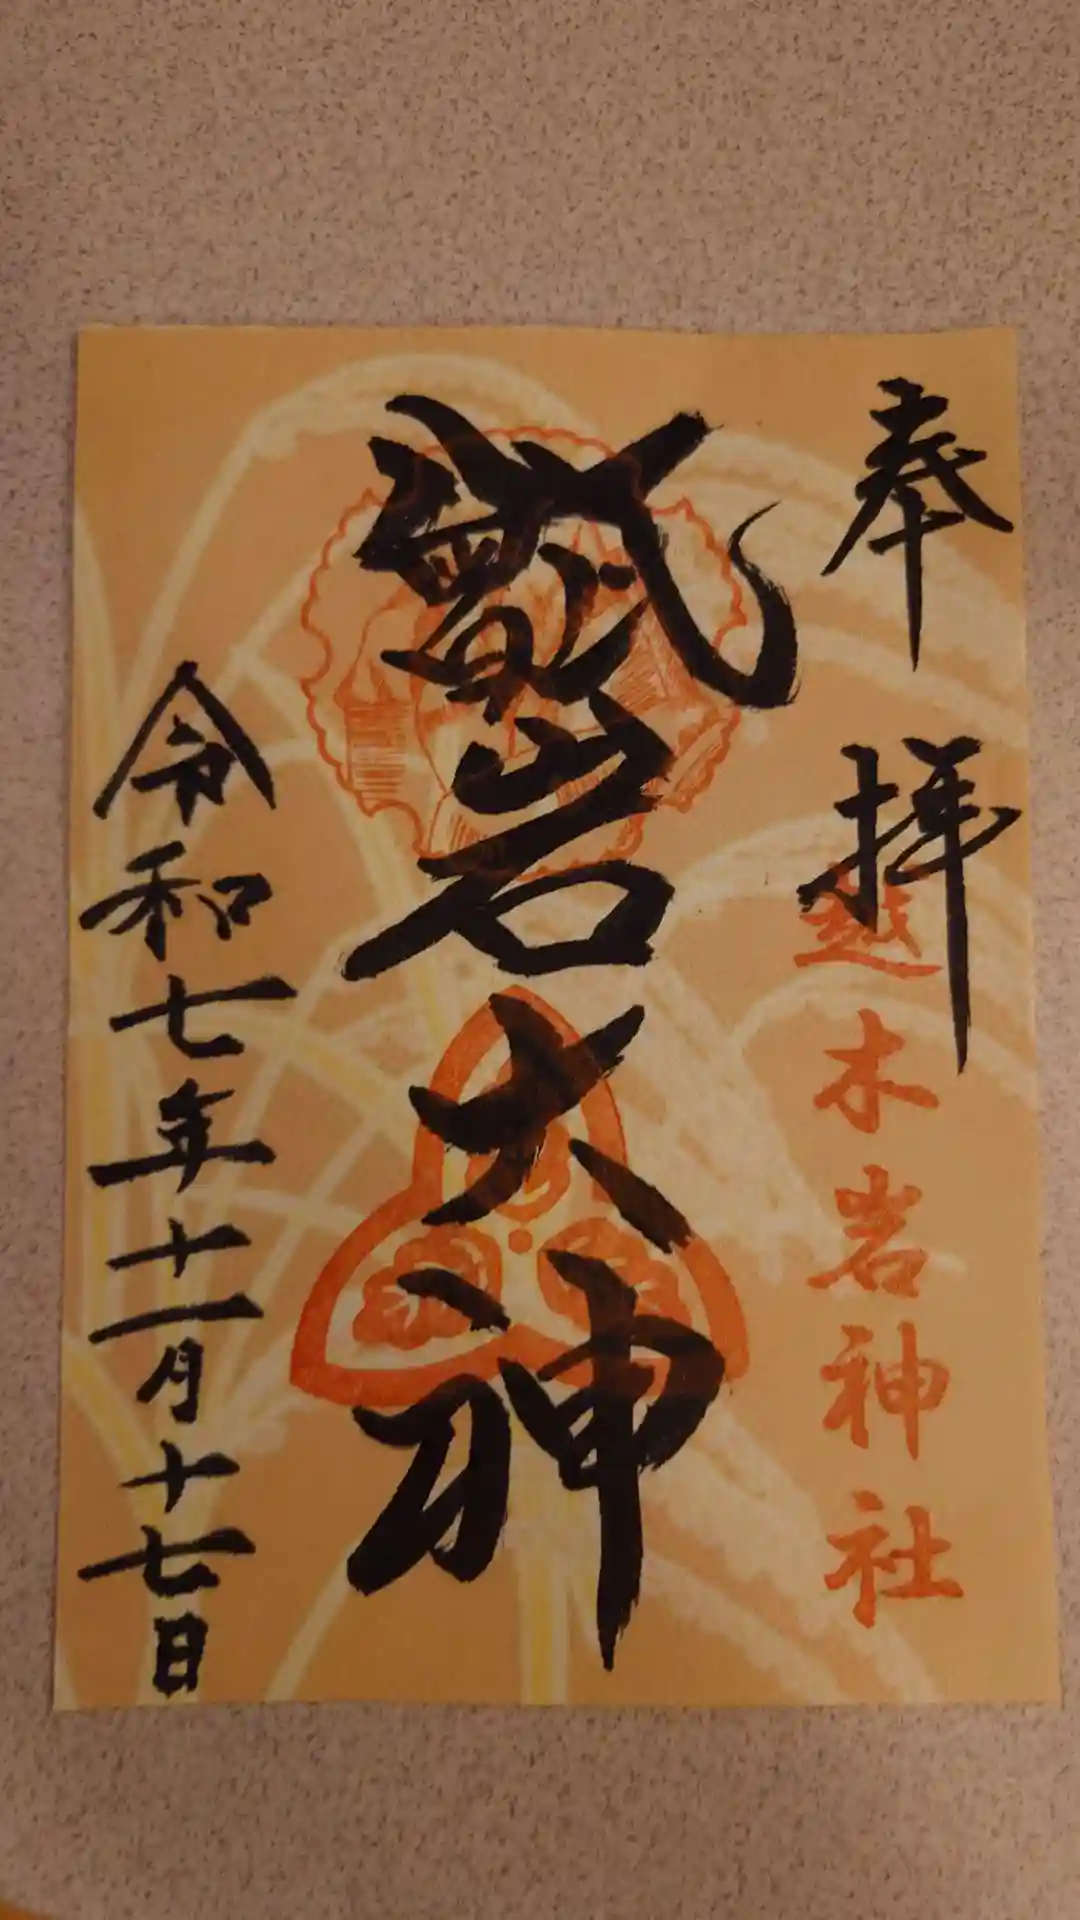 奉拝
越木岩神社
甑岩大神
令和七年十一月十七日